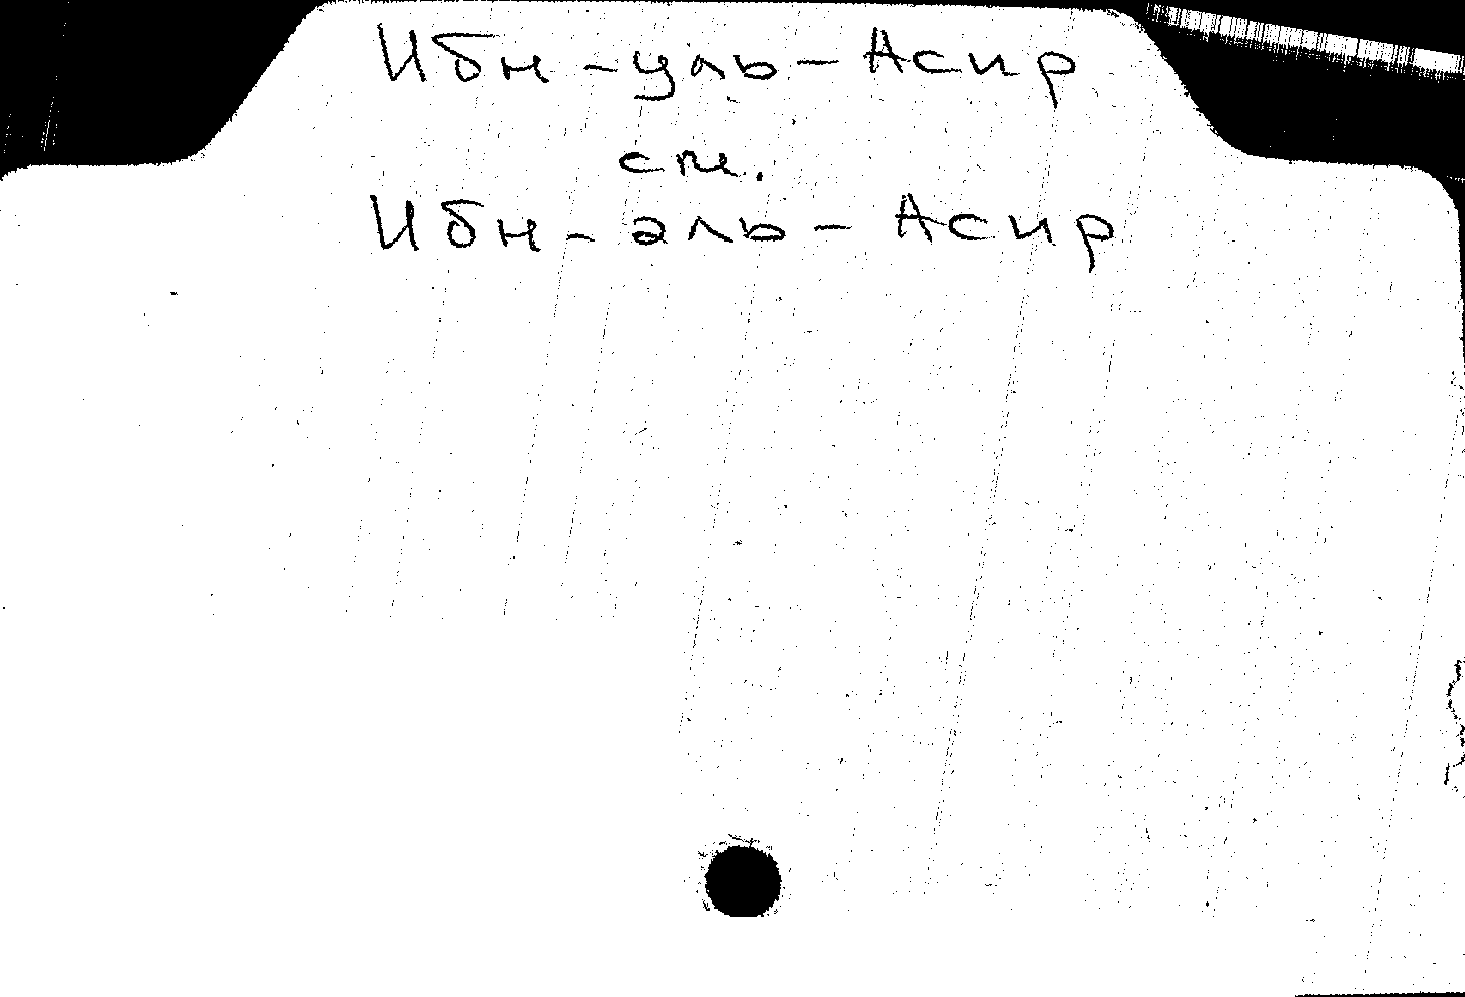 Ибн-уль-Асир
см.
Ибн-аль-Асир